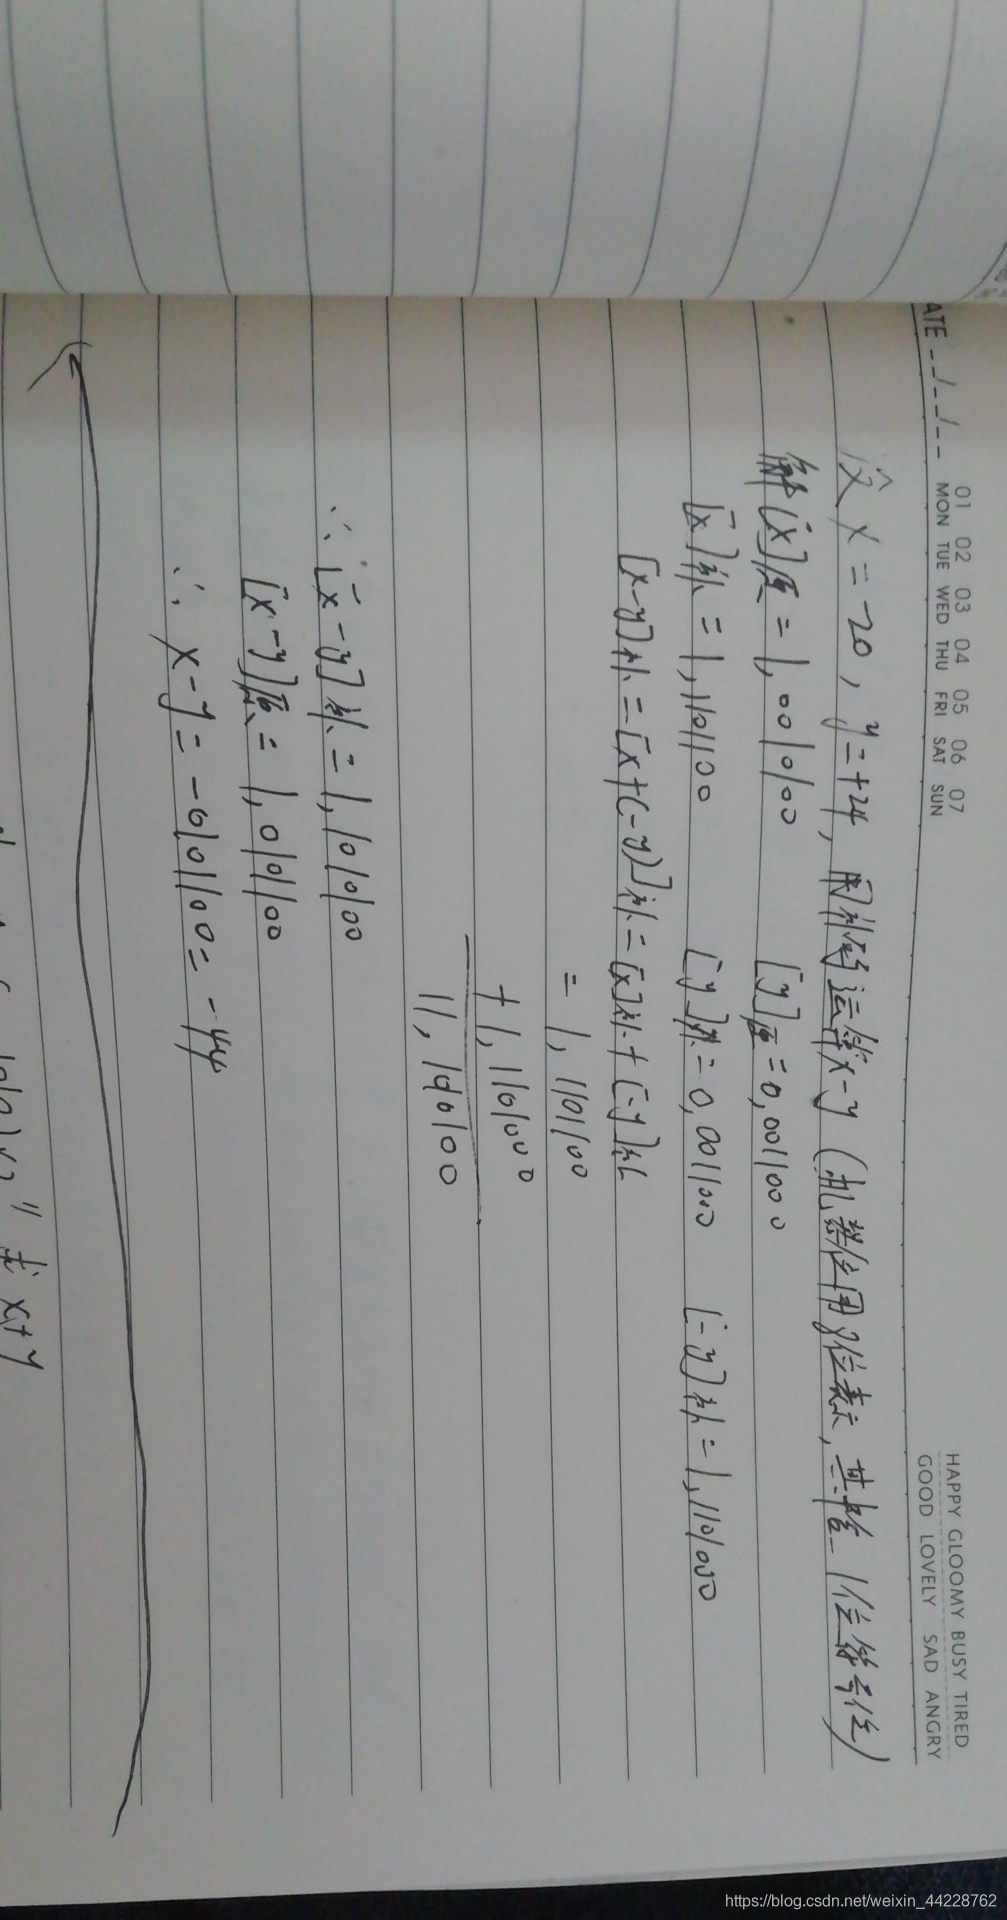 ATE __/__/__
01 02 03 04 05 06 07
MON TUE WED THU FRI SAT SUN
HAPPY GLOOMY BUSY TIRED
GOOD LOVELY SAD ANGRY
设 x=-20, y=+24, 用补码运算x-y (机器位用8位表示, 其描 1位符号位)
解 [x]原=1,0010100 [y]原=0,0011000
[x]补=1,1101100 [y]补=0,0011000 [-y]补=1,1101000
[x-y]补=[x+(-y)]补=[x]补+[-y]补
= 1,1101100
+ 1,1101000
11,1010100
∴ [x-y]补=1,1010100
[x-y]原=1,0101100
∴ x-y=-0101100=-44
求 x+y
https://blog.csdn.net/weixin_44228762